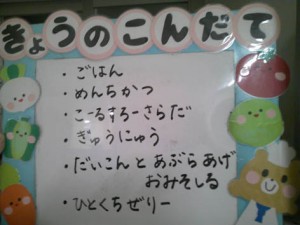 きょうのこんだて
・ごはん
・めんちかつ
・こーるすろーさらだ
・ぎゅうにゅう
・だいこんとあぶらあげ
おみそしる
・ひとくちぜりー